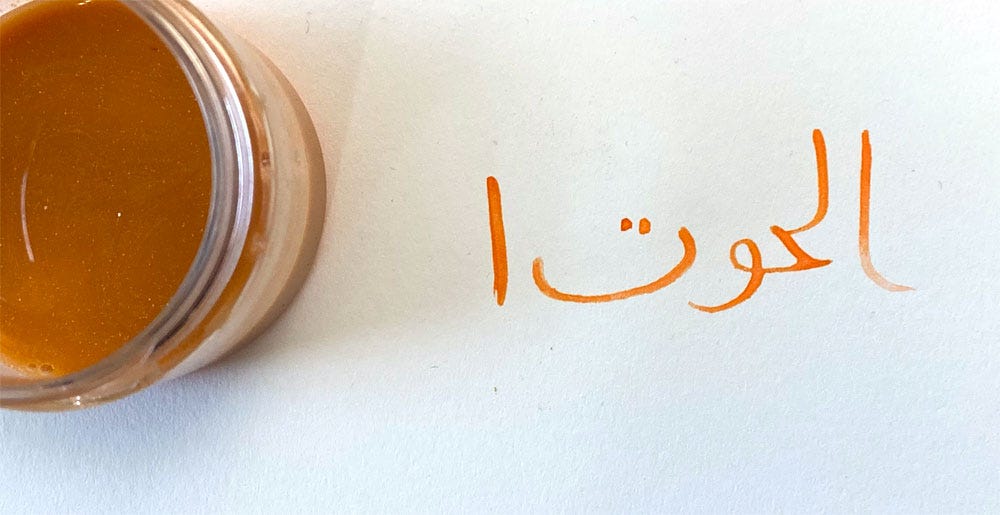 الحوت ا